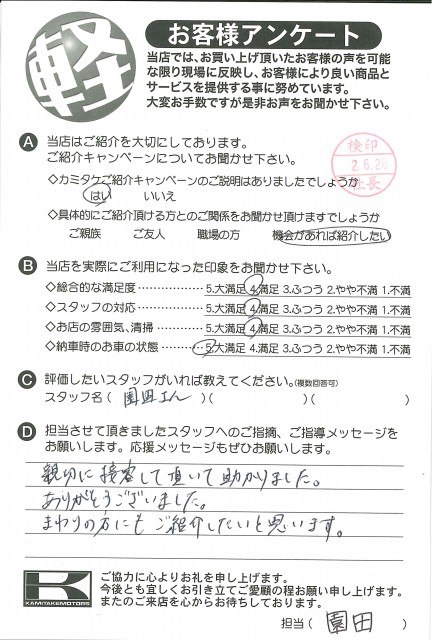 軽
お客様アンケート
当店では、お買い上げ頂いたお客様の声を可能
な限り現場に反映し、お客様により良い商品と
サービスを提供する事に努めています。
大変お手数ですが是非お声をお聞かせ下さい。
A 当店はご紹介を大切にしております。
ご紹介キャンペーンについてお聞かせ下さい。
検印
2.6.26
社長
◇カミタケご紹介キャンペーンのご説明はありましたでしょうか
はい いいえ
◇具体的にご紹介頂ける方とのご関係をお聞かせ頂けますでしょうか
ご親族 ご友人 職場の方 機会があれば紹介したい
B 当店を実際にご利用になった印象をお聞かせ下さい。
◇総合的な満足度 ………………… 5.大満足 4.満足 3.ふつう 2.やや不満 1.不満
◇スタッフの対応 ………………… 5.大満足 4.満足 3.ふつう 2.やや不満 1.不満
◇お店の雰囲気、清掃 …………… 5.大満足 4.満足 3.ふつう 2.やや不満 1.不満
◇納車時のお車の状態 …………… 5.大満足 4.満足 3.ふつう 2.やや不満 1.不満
C 評価したいスタッフがいれば教えてください。(複数回答可)
スタッフ名( 園田さん )( )( )
D 担当させて頂きましたスタッフへのご指摘、ご指導メッセージを
お願いします。応援メッセージもぜひお願いします。
親切に接客して頂いて助かりました。
ありがとうございました。
まわりの方にもご紹介したいと思います。
K
KAMITAKEMOTORS
ご協力に心よりお礼を申し上げます。
今後とも宜しくお引き立てご愛顧の程お願い申し上げます。
またのご来店を心からお待ちしております。
担当( 園田 )